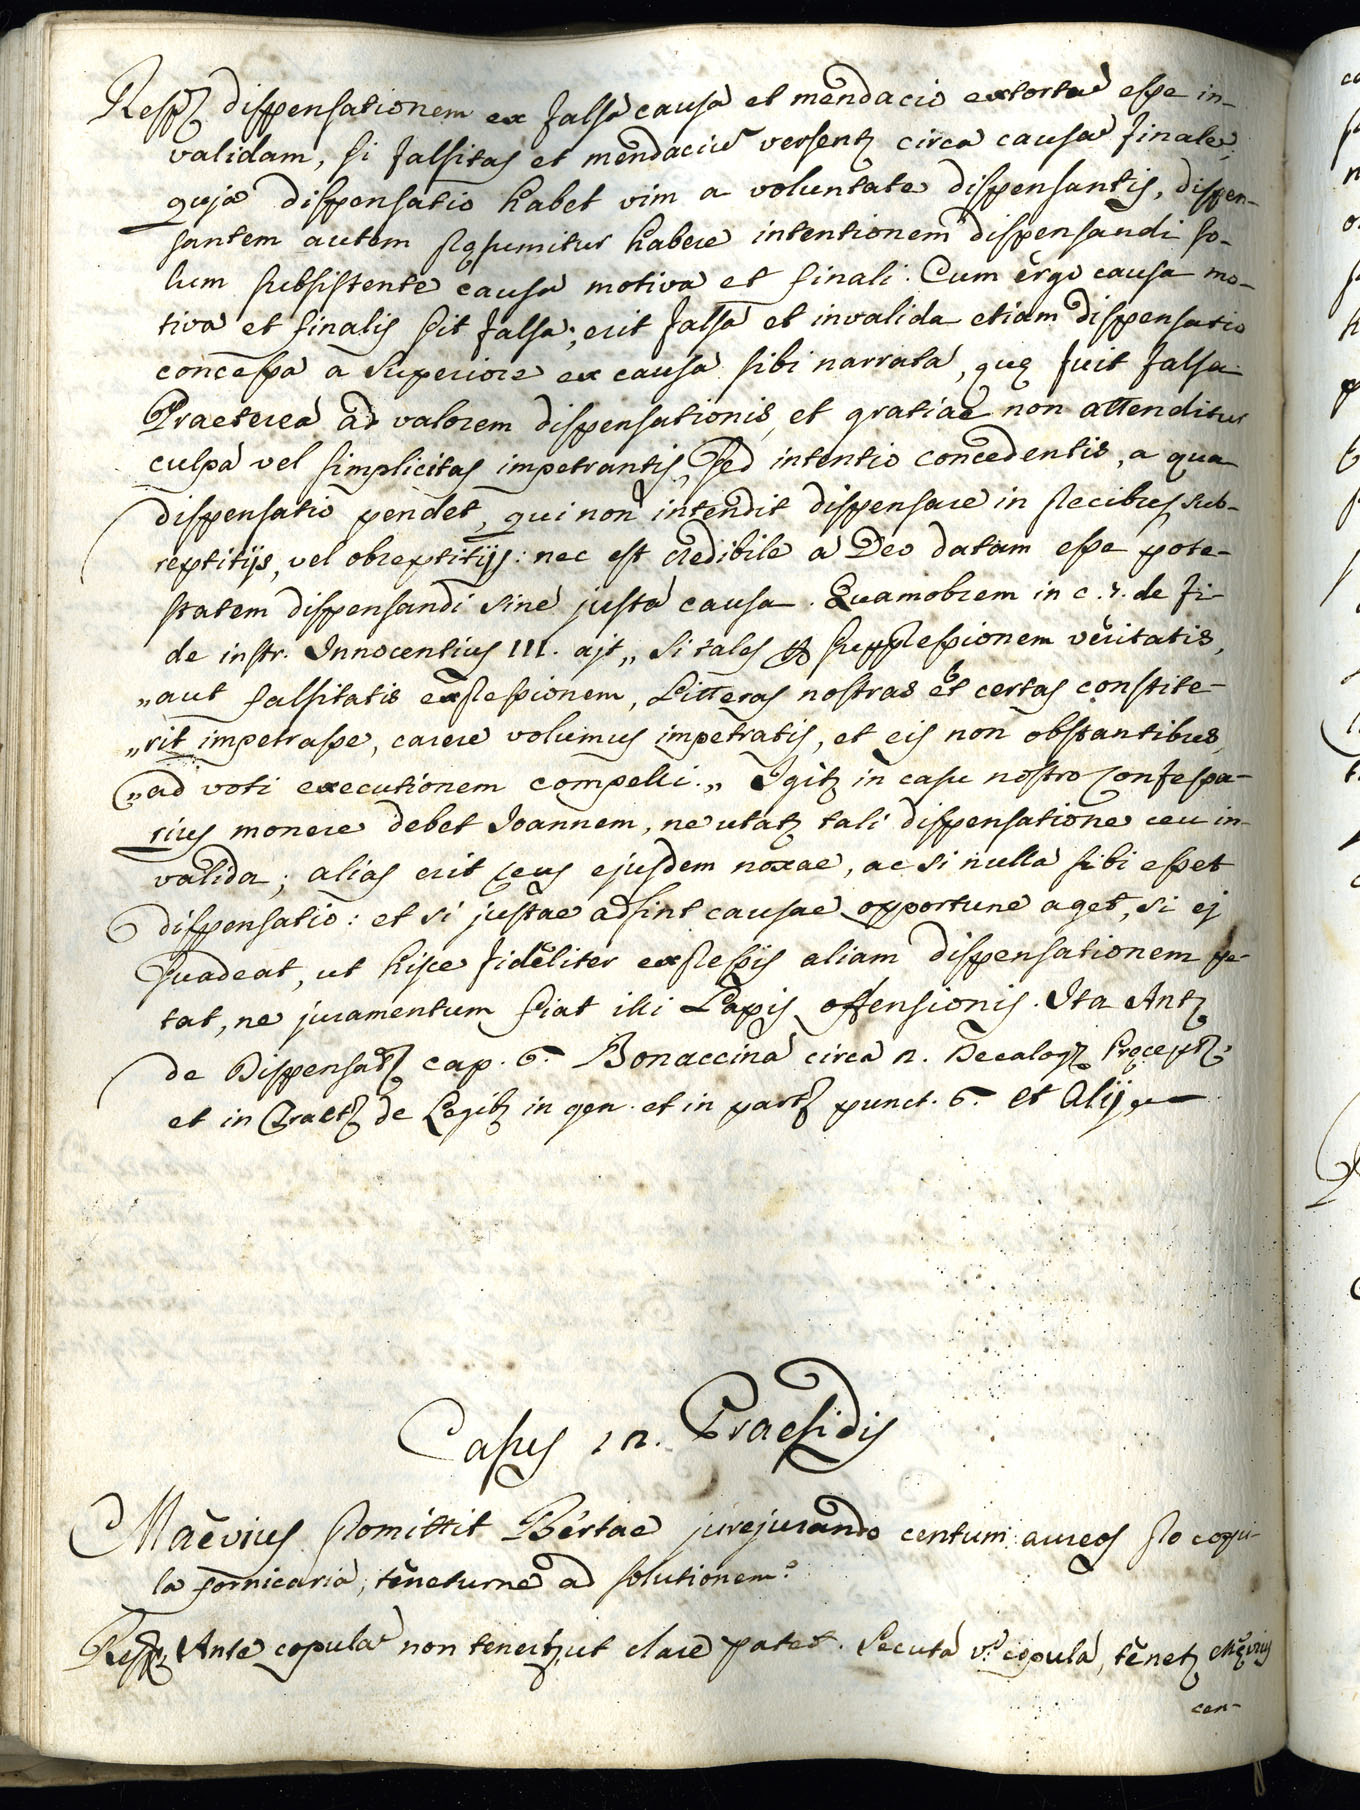 Resp. dispensationem ex falsa causa et mendacio extortã esse in-
validam, si falsitas et mendaciũ versent. circa causã finalẽ;
quia dispensatio habet vim a voluntate dispensantis, dispen-
santem autem præsumitur habere intentionem dispensandi so-
lum subsistente causa motiva et finali. Cum ergo causa mo-
tiva et finalis sit falsa; erit falsa et invalida etiam dispensatio
concessa a Superiore ex causa sibi narrata, quę fuit falsa.
Praeterea ad valorem dispensationis, et gratiae non attenditur
culpa vel simplicitas impetrantis, sed intentio concedentis, a qua
dispensatio pendet, qui non intendit dispensare in precibus sub-
reptitijs, vel obreptitijs: nec est credibile a Deo datam esse pote-
statem dispensandi sine justa causa. Quamobrem in c. 7. de fi-
de instr. Innocentius III. ajt „ Si tales per suppressionem veritatis,
„aut falsitatis expressionem, Litteras nostras et certas constite-
„rit impetrasse, carere volumus impetratis, et eis non obstantibus
„ad voti executionem compelli.„ Igit. in casu nostro Confessa-
rius monere debet Joannem, ne utat. tali dispensatione ceu in-
valida; alias erit reus ejusdem noxae, ac si nulla sibi esset
dispensatio: et si justae adsint causae opportune aget, si ej
suadeat, ut hisce fideliter expressis aliam dispensationem pe-
tat, ne juramentum fiat illi Lapis offensionis. Ita Ant.
de Dispensat. cap. 6. Bonaccina circa 2. Decalog. Pręcept.
et in Tract. de Legib. in gen. et in part. punct. 6. et Alij
Casus 12. Praesidis
Maevius promittit Bertae jurejurando centum aureos pro copu-
la fornicaria; teneturne ad solutionem?
Resp. Ante copulã non tenet., ut clare patet. Secuta vo. copula, tenet. Męvius
cen-